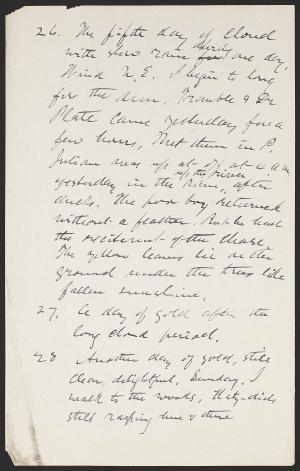 26. The fifth day of cloud
with slow rain during one day.
Wind N. E. I begin to long
for the sun. Tromble & Dr
Plate came yesterday for a
few hours. Met them in P.
Julian was up at at 4 a.m.
yesterday in the rain, up the river after
ducks. The poor boy returned
without a feather. But he had
the excitement of the chase.
The yellow leaves lie on the
ground under the trees like
fallen sunshine.
27. A day of gold after the
long cloud period.
28 Another day of gold, still
clear, delightful, Sunday. I
walk to the woods, Katy-dids
still rasping here & there